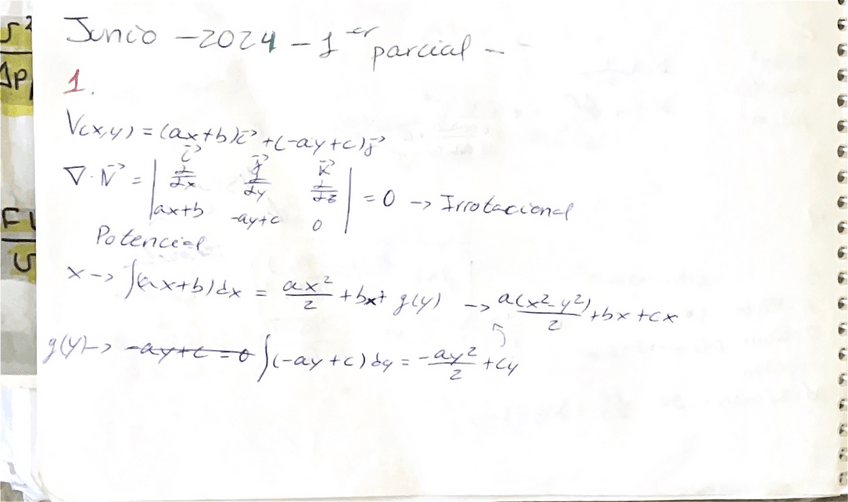 Junio - 2024 - 1er parcial -
1.
V(x,y) = (ax+b)i⃗ + (-ay+c)j⃗
∇·V⃗ = | i⃗ j⃗ k⃗ |
| d/dx d/dy d/dz | = 0 → Irrotacional
| ax+b -ay+c 0 |
Potencial
x → ∫(ax+b)dx = ax²/2 + bx + g(y) → a(x²-y²)/2 + bx + cx
g(y) → -ay+c=0 ∫(-ay+c)dy = -ay²/2 + cy